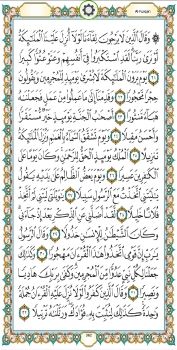 Al-Furqan
۞ وَقَالَ ٱلَّذِينَ لَا يَرْجُونَ لِقَآءَنَا لَوْلَآ أُنزِلَ عَلَيْنَا ٱلْمَلَٰٓئِكَةُ
أَوْ نَرَىٰ رَبَّنَا ۗ لَقَدِ ٱسْتَكْبَرُوا۟ فِىٓ أَنفُسِهِمْ وَعَتَوْ عُتُوًّا كَبِيرًا
٢١ يَوْمَ يَرَوْنَ ٱلْمَلَٰٓئِكَةَ لَا بُشْرَىٰ يَوْمَئِذٍ لِّلْمُجْرِمِينَ وَيَقُولُونَ
حِجْرًا مَّحْجُورًا ٢٢ وَقَدِمْنَآ إِلَىٰ مَا عَمِلُوا۟ مِنْ عَمَلٍ فَجَعَلْنَٰهُ
هَبَآءً مَّنثُورًا ٢٣ أَصْحَٰبُ ٱلْجَنَّةِ يَوْمَئِذٍ خَيْرٌ مُّسْتَقَرًّا
وَأَحْسَنُ مَقِيلًا ٢٤ وَيَوْمَ تَشَقَّقُ ٱلسَّمَآءُ بِٱلْغَمَٰمِ وَنُزِّلَ ٱلْمَلَٰٓئِكَةُ
تَنزِيلًا ٢٥ ٱلْمُلْكُ يَوْمَئِذٍ ٱلْحَقُّ لِلرَّحْمَٰنِ ۚ وَكَانَ يَوْمًا عَلَى
ٱلْكَٰفِرِينَ عَسِيرًا ٢٦ وَيَوْمَ يَعَضُّ ٱلظَّالِمُ عَلَىٰ يَدَيْهِ يَقُولُ
يَٰلَيْتَنِى ٱتَّخَذْتُ مَعَ ٱلرَّسُولِ سَبِيلًا ٢٧ يَٰوَيْلَتَىٰ لَيْتَنِى لَمْ أَتَّخِذْ
فُلَانًا خَلِيلًا ٢٨ لَّقَدْ أَضَلَّنِى عَنِ ٱلذِّكْرِ بَعْدَ إِذْ جَآءَنِى ۗ
وَكَانَ ٱلشَّيْطَٰنُ لِلْإِنسَٰنِ خَذُولًا ٢٩ وَقَالَ ٱلرَّسُولُ
يَٰرَبِّ إِنَّ قَوْمِى ٱتَّخَذُوا۟ هَٰذَا ٱلْقُرْءَانَ مَهْجُورًا ٣٠ وَكَذَٰلِكَ
جَعَلْنَا لِكُلِّ نَبِىٍّ عَدُوًّا مِّنَ ٱلْمُجْرِمِينَ ۗ وَكَفَىٰ بِرَبِّكَ هَادِيًا
وَنَصِيرًا ٣١ وَقَالَ ٱلَّذِينَ كَفَرُوا۟ لَوْلَا نُزِّلَ عَلَيْهِ ٱلْقُرْءَانُ جُمْلَةً
وَٰحِدَةً ۚ كَذَٰلِكَ لِنُثَبِّتَ بِهِۦ فُؤَادَكَ ۖ وَرَتَّلْنَٰهُ تَرْتِيلًا ٣٢